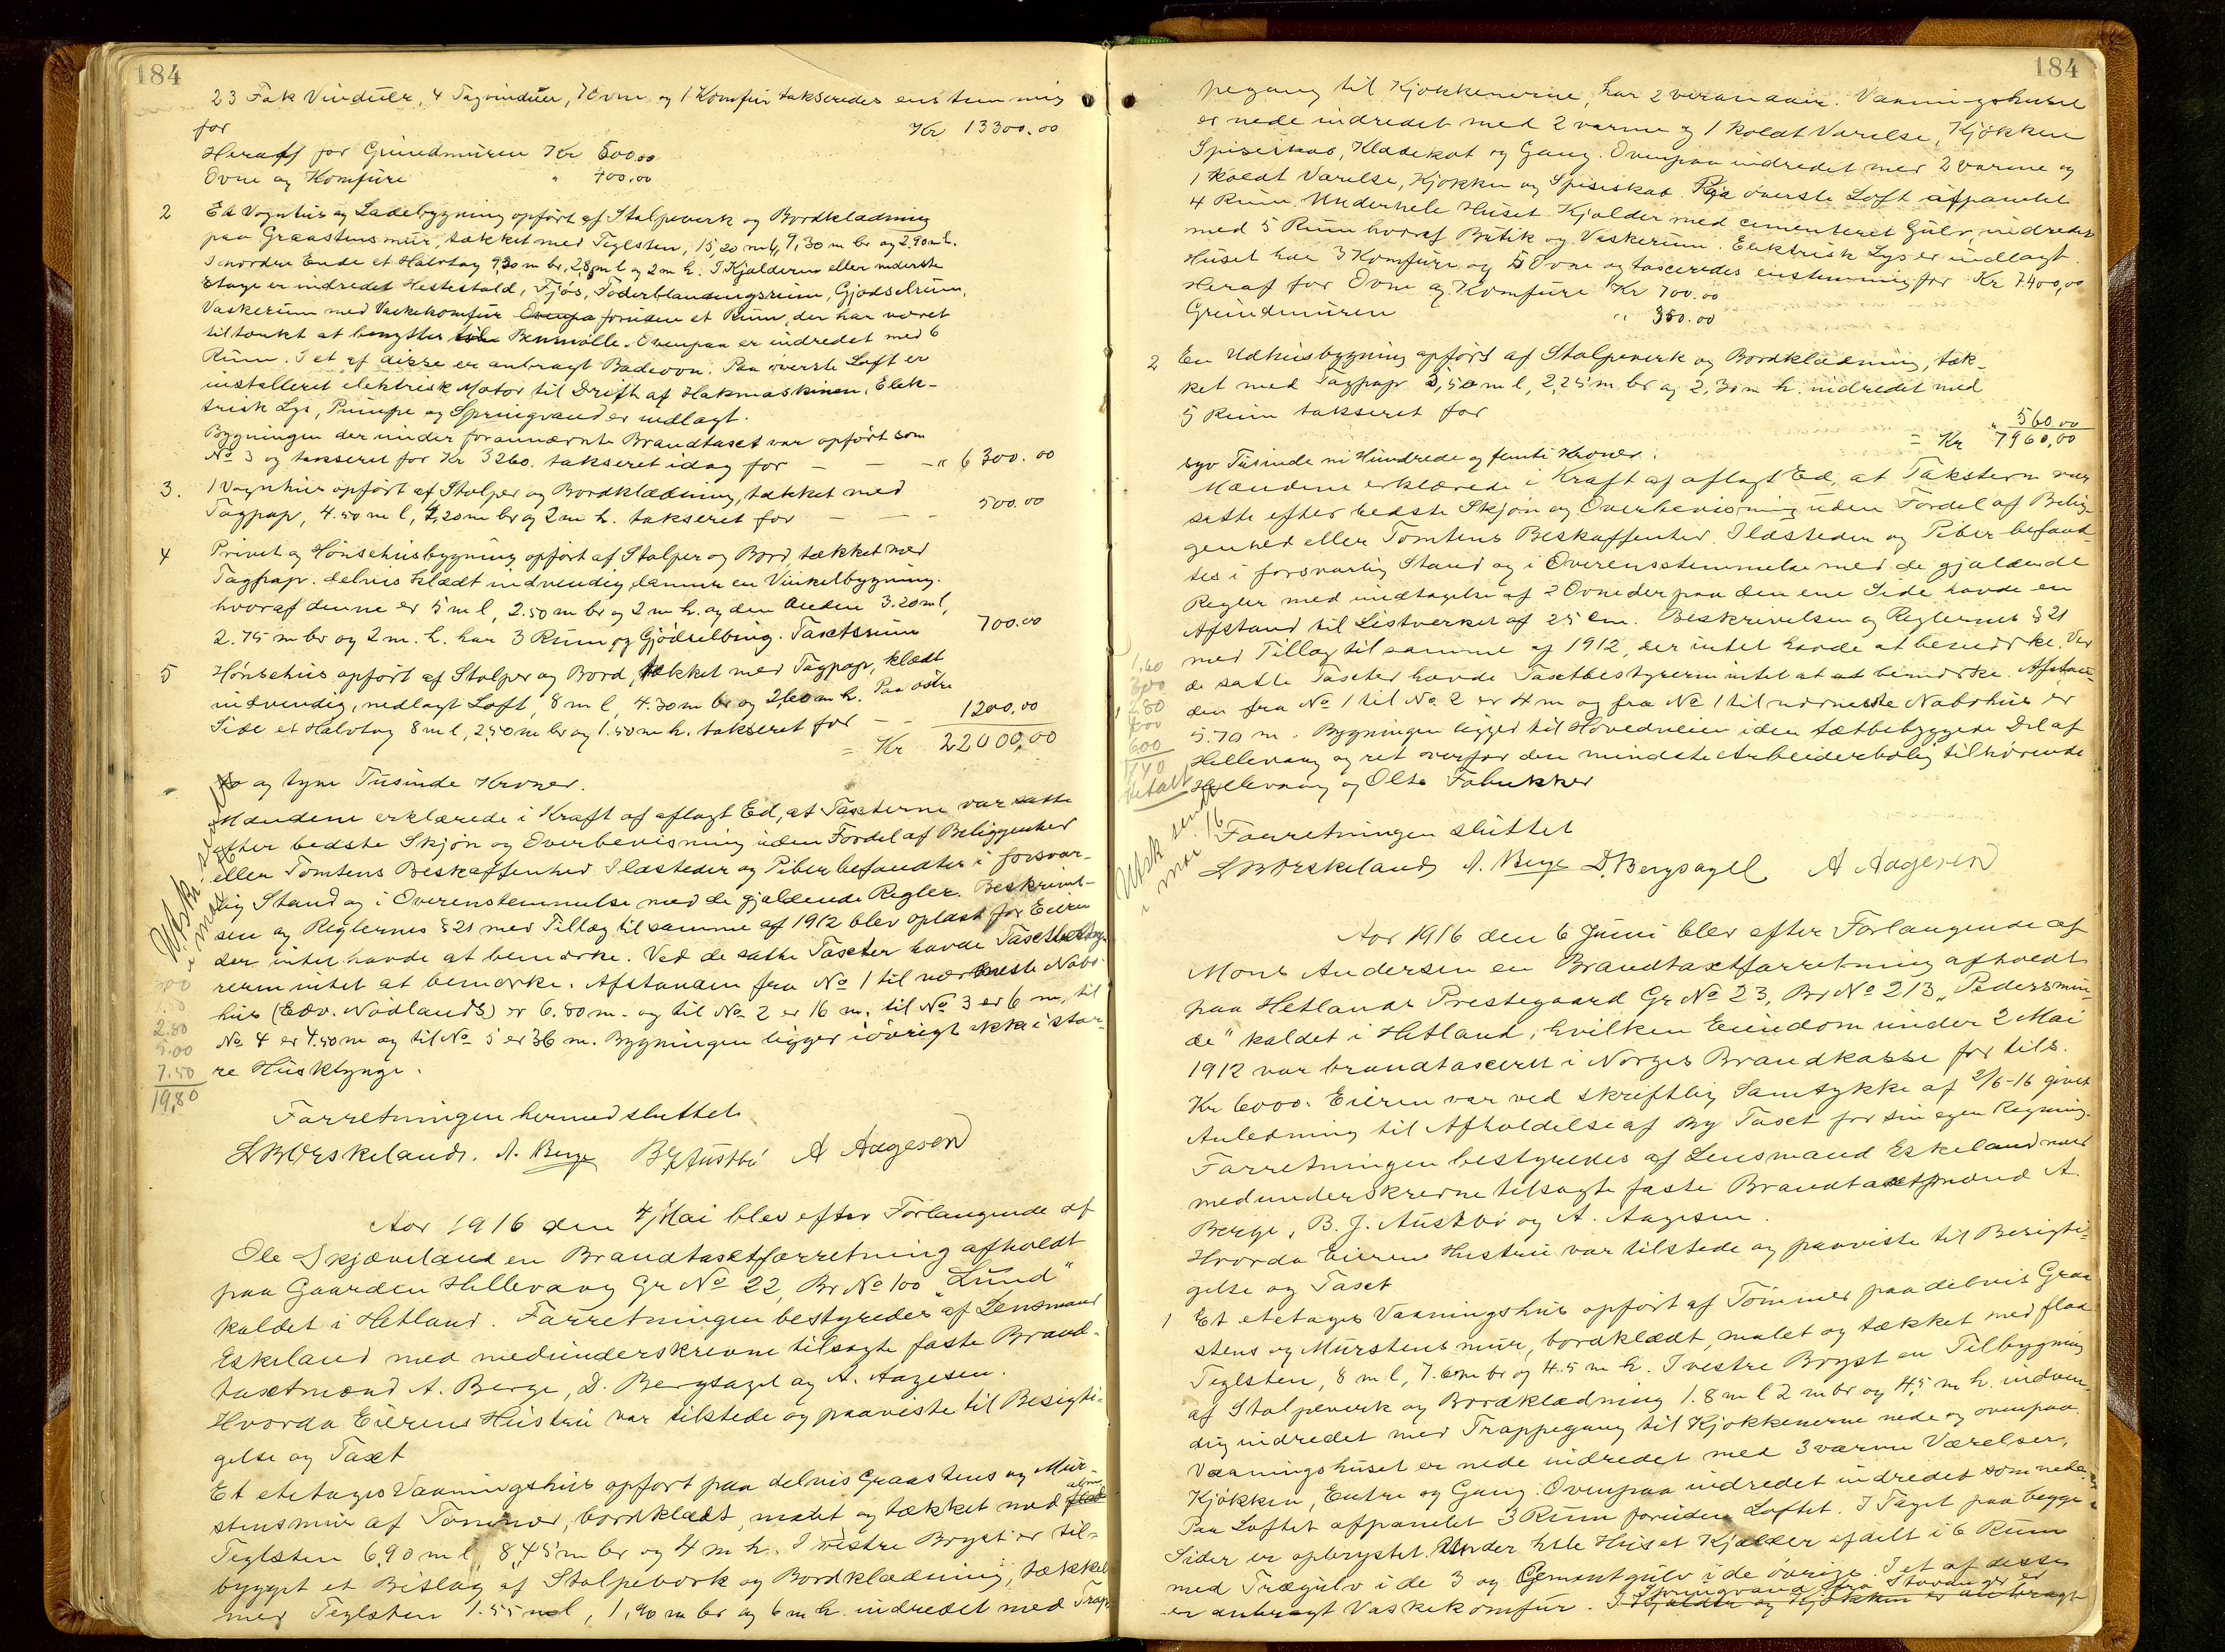 184
23 Fak Vinduer, 4 Tagvinduer, 7 Ovne og 1 Komfur takseredes enstemmig
for Kr 13300.00
Heraf for Grundmuren Kr 500.00
Ovne og Komfure " 400.00
2 Et Vognhus og Ladebygning opført af Stolpeverk og Bordklædning
paa Graastensmur, tækket med Teglsten, 15,20 m l, 9,30 m br og 2.90 m h.
I nordre Ende et Halvtag 9,30 m br, 2,8 m l og 2 m h. I Kjælderen eller nederste
Etage er indredet Hestestald, Fjøs, Foderblandingsrum, Gjødselrum,
Vaskerum med Vaskekomfur foruden et Rum, der har været
tiltænkt at benyttes til Benmølle. Ovenpaa er indredet med 6
Rum. I et af disse er anbragt Badeovn. Paa øverste Loft er
installeret elektrisk Motor til Drift af Hakmaskinen. Elek-
trisk Lys, Pumpe og Springvand er indlagt.
Bygningen der under forannævnte Brandtaxt var opført som
No 3 og takseret for Kr 3260. takseret idag for — — — " 6300.00
3. 1 Vognhus opført af Stolper og Bordklædning, tækket med
Tagpap, 4.50 m l, 4,20 m br og 2 m h. takseret for — — 500.00
4 Privet og Hønsehusbygning opført af Stolper og Bord, tækket med
Tagpap. delvis klædt indvendig, danner en Vinkelbygning.
hvoraf denne er 5 m l, 2.50 m br og 2 m h. og den Anden 3.20 m l,
2.75 m br og 2 m. h. har 3 Rum og Gjødselbing. Taxtsum 700.00
5 Hønsehus opført af Stolper og Bord, tækket med Tagpap, klædt
indvendig, nedlagt Loft, 8 m l, 4.30 m br og 2,60 m h. Paa østre
Side et Halvtag 8 m l, 2,50 m br og 1.50 m h. takseret for — — 1200.00
= Kr 22000,00
to og tyve Tusinde Kroner.
Mændene erklærede i Kraft af aflagt Ed, at Taxterne var satte
efter bedste Skjøn og Overbevisning uden Fordel af Beliggenhed
eller Tomtens Beskaffenhed Ildsteder og Piber befandtes i forsvar-
lig Stand og i Overenstemmelse med de gjældende Regler. Beskrivel-
sen og Reglernes § 21 med Tillæg til samme af 1912 blev oplæst for Eieren
der intet havde at bemærke. Ved de satte Taxter havde Taxtbesty-
reren intet at bemærke. Afstanden fra No 1 til nærmeste Nabo-
hus (Edv. Nødlands) er 6.80 m. og til No 2 er 16 m, til No 3 er 6 m, til
No 4 er 4.50 m og til No 5 er 36 m. Bygningen ligger iøvrigt ikke i stør-
re Husklynge.
300
1.50
2.80
5.00
7.50
19,80
Forretningen hermed sluttet
L B Eskeland. A. Berge B J Austbø A Aagesen
Aar 1916 den 4 Mai blev efter Forlangende af
Ole Skjæveland en Brandtaxtforretning afholdt
paa Gaarden Hillevaag Gr No 22, Br No 100 "Lund"
kaldet i Hetland. Forretningen bestyredes af Lensmand
Eskeland med medunderskrevne tilsagte faste Brand-
taxtmænd A. Berge, D. Bergsagel og A. Aagesen.
Hvorda Eierens Hustru var tilstede og paaviste til Besigti-
gelse og Taxt
Et etetages Vaaningshus opført paa delvis Graastens og Mur-
stensmur af Tømmer, bordklædt, malet og tækket med flad
Teglsten 6,90 m l, 8,45 m br og 4 m h. I vestre Bryst er til-
bygget et Bislag af Stolpeverk og Bordklædning, tækket
med Teglsten 1.55 m l, 1,90 m br og 6 m h. indredet med Trap-
184
pegang til Kjøkkenerne, har 2 verandaer. Vaaningshuset
er nede indredet med 2 varme og 1 koldt Værelse, Kjøkken
Spiseskab, Klædekot og Gang. Ovenpaa indredet med 2 varme og
1 koldt Værelse, Kjøkken og Spiseskab. Paa øverste Loft afpanelet
4 Rum. Under hele Huset Kjælder med cementeret Gulv, indredet
med 5 Rum hvoraf Butik og Vaskerum. Elektrisk Lys er indlagt.
Huset har 3 Komfure og 5 Ovne og taxeredes enstemmig for Kr 7400,00
Heraf for Ovne og Komfure Kr 700.00
Grundmuren " 350.00
2 En Udhusbygning opført af Stolpeverk og Bordklædning, tæk-
ket med Tagpap 3,50 m l, 2,25 m br og 2,30 m h. indredet med
5 Rum takseret for " 560.00
= Kr 7960,00
syv Tusinde ni Hundrede og femti Kroner.
Mændene erklærede i Kraft af aflagt Ed, at Taksterne var
satte efter bedste Skjøn og Overbevisning uden Fordel af Belig-
genhed eller Tomtens Beskaffenhed. Ildsteder og Piber befand-
tes i forsvarlig Stand og i Overensstemmelse med de gjældende
Regler med undtagelse af 2 Ovne der paa den ene Side havde en
Afstand til Listverket af 25 cm. Beskrivelsen og Reglernes § 21
med Tillæg til samme af 1912, der intet havde at bemærke. Ved
de satte Taxter havde Taxtbestyreren intet at bemærke. Afstan-
den fra No 1 til No 2 er 4 m og fra No 1 til nærmeste Nabohus er
5.70 m. Bygningen ligger til Hovedveien i den tætbebyggede Del af
Hillevaag og ret overfor den mindste Arbeiderbolig tilhørende
Hillevaag og Ølte Fabrikker
1.60
300
2.80
400
600
betalt
Utsk. sendt
i mai 16
Forretningen sluttet
L B Eskeland A. Berge D. Bergsagel A Aagesen
Aar 1916 den 6 Juni blev efter Forlangende af
Mons Andersen en Brandtaxtforretning afholdt
paa Hetlands Prestegaard Gr No 23, Br No 213 "Pedersmin-
de" kaldet i Hetland, hvilken Eiendom under 2 Mai
1912 var brandtaxeret i Norges Brandkasse for tils.
Kr 6000. Eieren var ved skriftlig Samtykke af 2/6-16 givet
Anledning til Afholdelse af Ny Taxt for sin egen Regning.
Forretningen bestyredes af Lensmand Eskeland med
medunderskrevne tilsagte faste Brandtaxtmænd A.
Berge, B. J. Austbø og A. Aagesen.
Hvorda Eierens Hustru var tilstede og paaviste til Besigti-
gelse og Taxt
1 Et etetages Vaaningshus opført af Tømmer paa delvis Graa
stens og Murstensmur, bordklædt, malet og tækket med flad
Teglsten, 8 m l, 7.6 m br og 4.5 m h. I vestre Bryst en Tilbygning
af Stolpeverk og Bordklædning 1.8 m l 2 m br og 4,5 m h. indven-
dig indredet med Trappegang til Kjøkkenerne nede og ovenpaa.
Vaaningshuset er nede indredet med 3 varme Værelser,
Kjøkken, Entre og Gang. Ovenpaa indredet indredet som nede.
Paa Loftet afpanelet 3 Rum foruden Loftet. I Taget paa begge
Sider er opbrystet. Under hele Huset Kjælder afdelt i 6 Rum
med Trægulv i de 3 og Cementgulv i de øvrige. I et af disse
Springvand fra Stavanger er
er anbragt Vaskekomfur. I Kjælder og Kjøkken er anbragt